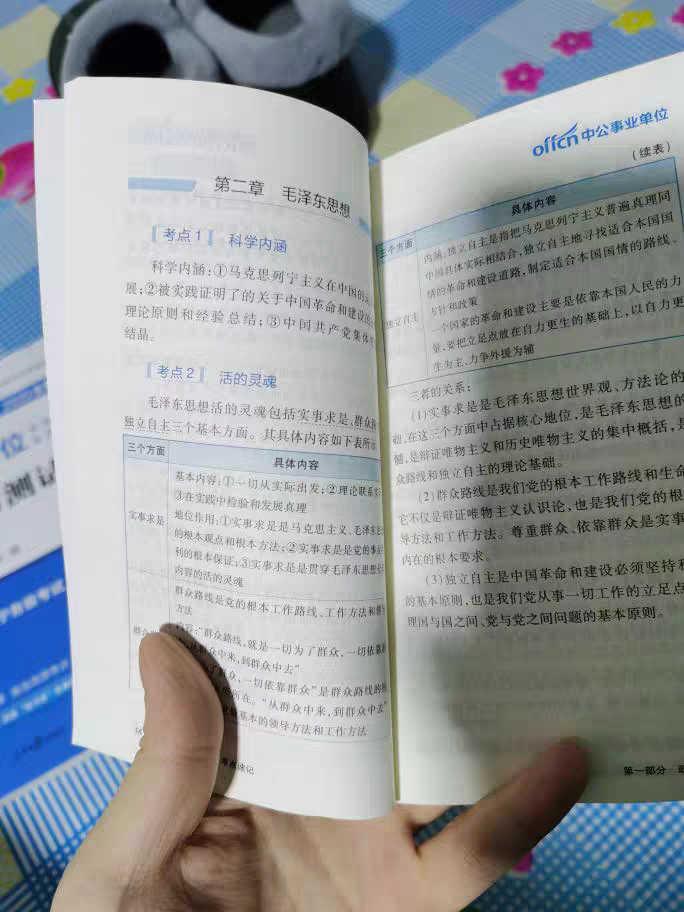 第二章 毛泽东思想
【考点1】 科学内涵
科学内涵:①马克思列宁主义在中国的
展;②被实践证明了的关于中国革命和建设的
理论原则和经验总结;③中国共产党集体
结晶。
【考点2】 活的灵魂
毛泽东思想活的灵魂包括实事求是、群众
独立自主三个基本方面。其具体内容如下表所
三个方面 具体内容
基本内容:①一切从实际出发;②理论联系
③在实践中检验和发展真理
实事求是
地位作用:①实事求是是马克思主义、毛泽东
的根本观点和根本方法;②实事求是是党的事业
利的根本保证;③实事求是是贯穿毛泽东思想
内容的活的灵魂
群众路线是党的根本工作路线、工作方法和
方法
“群众路线,就是一切为了群众,一切依靠
从群众中来,到群众中去”
群众,一切依靠群众”是群众路线的
所在。“从群众中来,到群众中去”
基本的领导方法和工作方法
速记
offcn 中公事业单位
(续表)
三个方面 具体内容
内涵:独立自主是指把马克思列宁主义普遍真理同
中国具体实际相结合,独立自主地寻找适合本国国
情的革命和建设道路,制定适合本国国情的路线、
方针和政策
独立自主
一个国家的革命和建设主要是依靠本国人民的力
量,要把立足点放在自力更生的基础上,以自力更
生为主,力争外援为辅
三者的关系:
(1)实事求是是毛泽东思想世界观、方法论的
础,在这三个方面中占据核心地位,是毛泽东思想的
髓,是辩证唯物主义和历史唯物主义的集中概括,是
众路线和独立自主的理论基础。
(2)群众路线是我们党的根本工作路线和生命
它不仅是辩证唯物主义认识论,也是我们党的根
导方法和工作方法。尊重群众、依靠群众是实事
内在的根本要求。
(3)独立自主是中国革命和建设必须坚持
的基本原则,也是我们党从事一切工作的立足点
理国与国之间、党与党之间问题的基本原则。
第一部分
位
测试